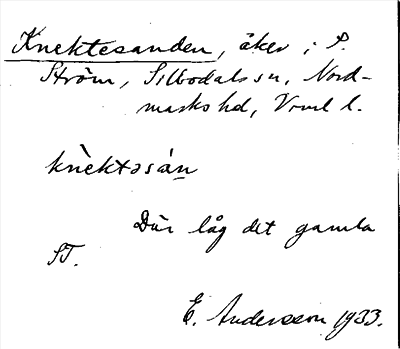 Knektesanden, åker i P.
Ström, Silbodals sn, Nord-
marks hd, Vrml l.
knèktəsán̠
Där låg det gamla
ST.
E. Andersson 1933.